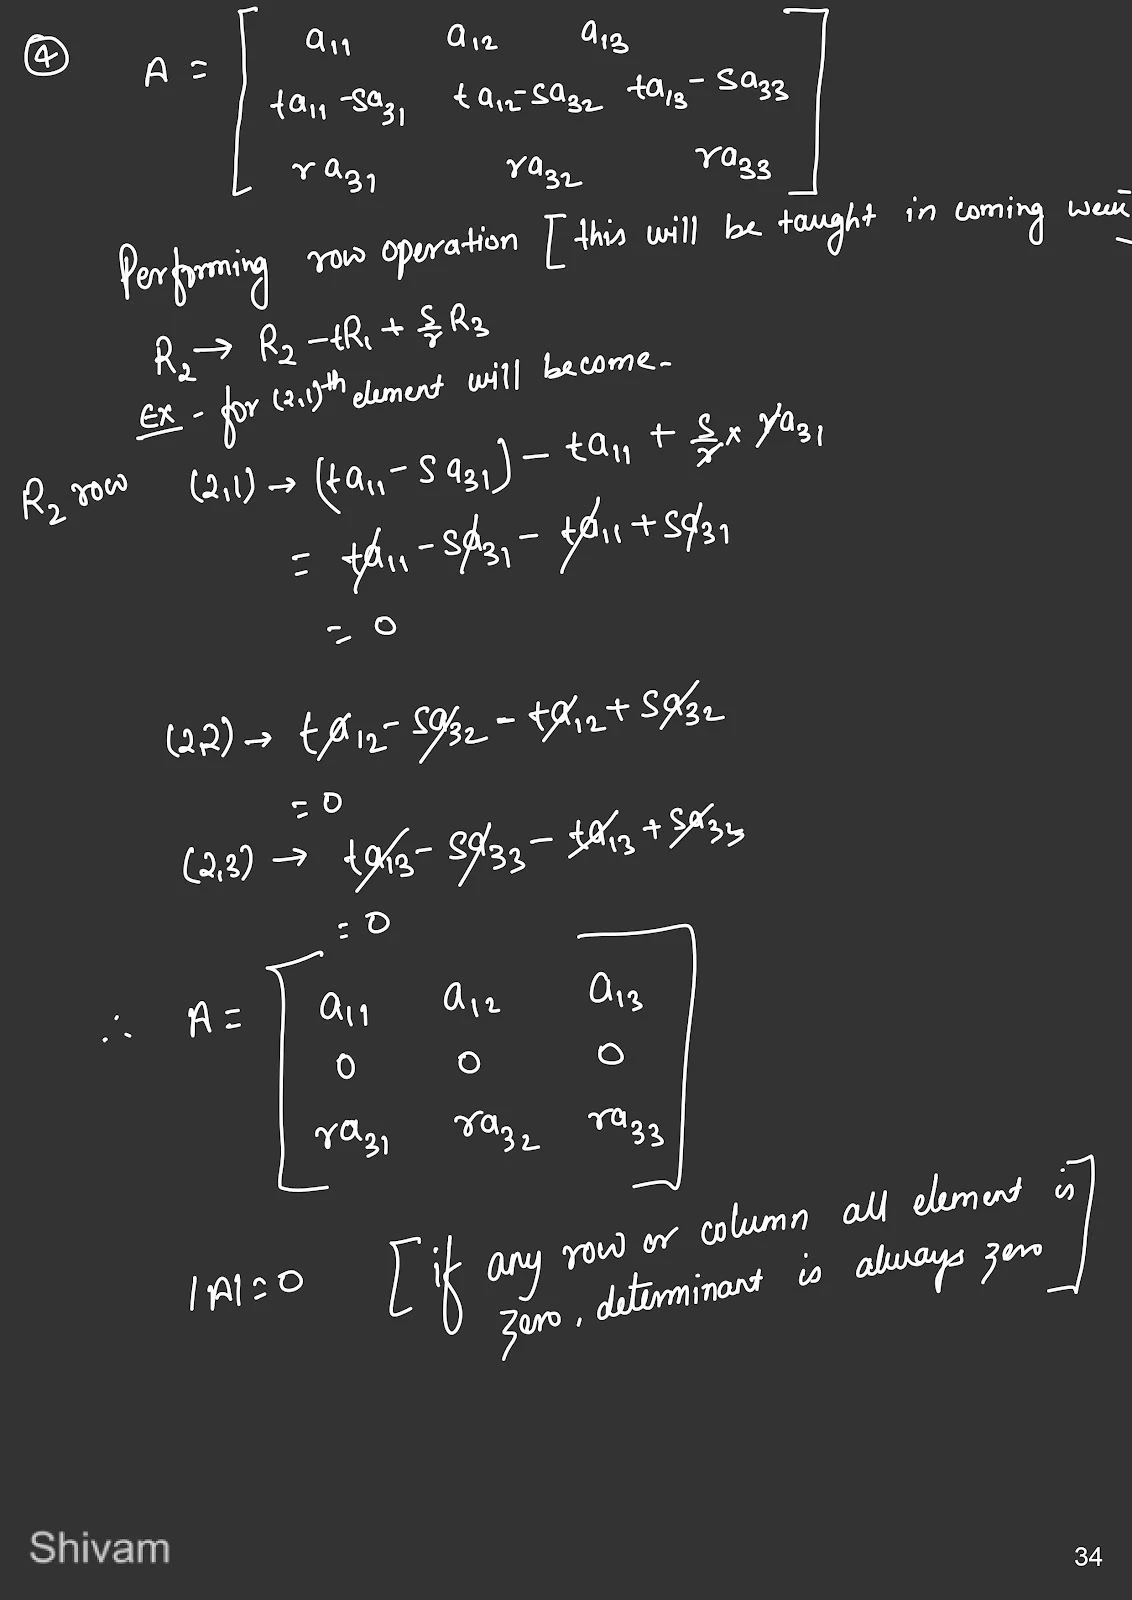 ④ A = [ a₁₁ a₁₂ a₁₃
ta₁₁-sa₃₁ ta₁₂-sa₃₂ ta₁₃-sa₃₃
ra₃₁ ra₃₂ ra₃₃ ]
Performing row operation [this will be taught in coming week]
R₂ → R₂ - tR₁ + s/r R₃
Ex - for (2,1)th element will become -
R₂ row (2,1) → (ta₁₁ - sa₃₁) - ta₁₁ + s/r × ra₃₁
= ta₁₁ - sa₃₁ - ta₁₁ + sa₃₁
= 0
(2,2) → ta₁₂ - sa₃₂ - ta₁₂ + sa₃₂
= 0
(2,3) → ta₁₃ - sa₃₃ - ta₁₃ + sa₃₃
= 0
∴ A = [ a₁₁ a₁₂ a₁₃
0 0 0
ra₃₁ ra₃₂ ra₃₃ ]
|A| = 0 [if any row or column all element is
zero, determinant is always zero]
Shivam
34